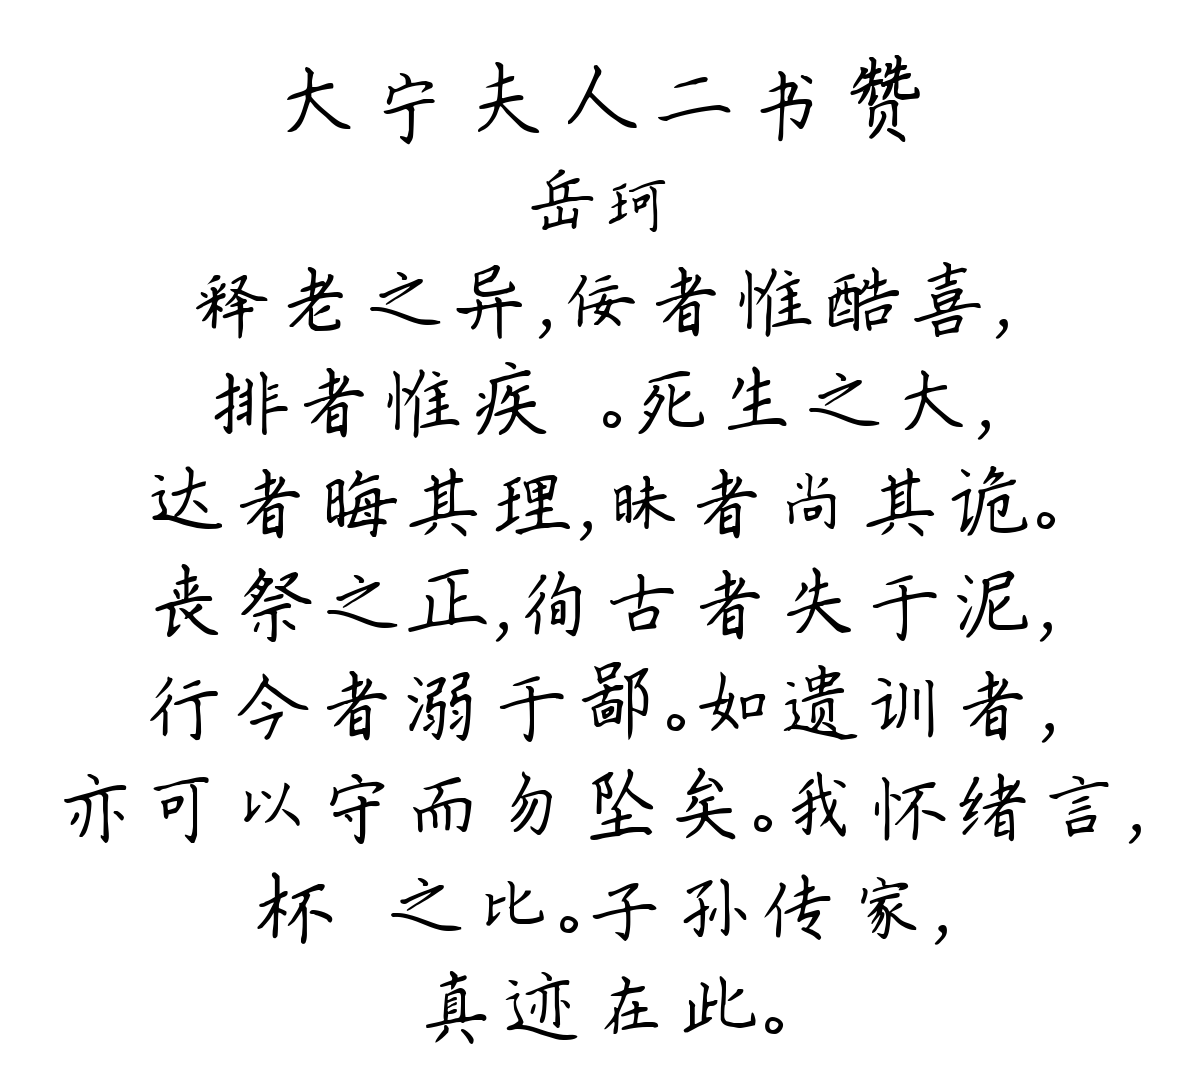 大宁夫人二书赞
岳珂
释老之异,佞者惟酷喜,
排者惟疾 。死生之大,
达者晦其理,昧者尚其诡。
丧祭之正,徇古者失于泥,
行今者溺于鄙。如遗训者,
亦可以守而勿坠矣。我怀绪言,
杯 之比。子孙传家,
真迹在此。